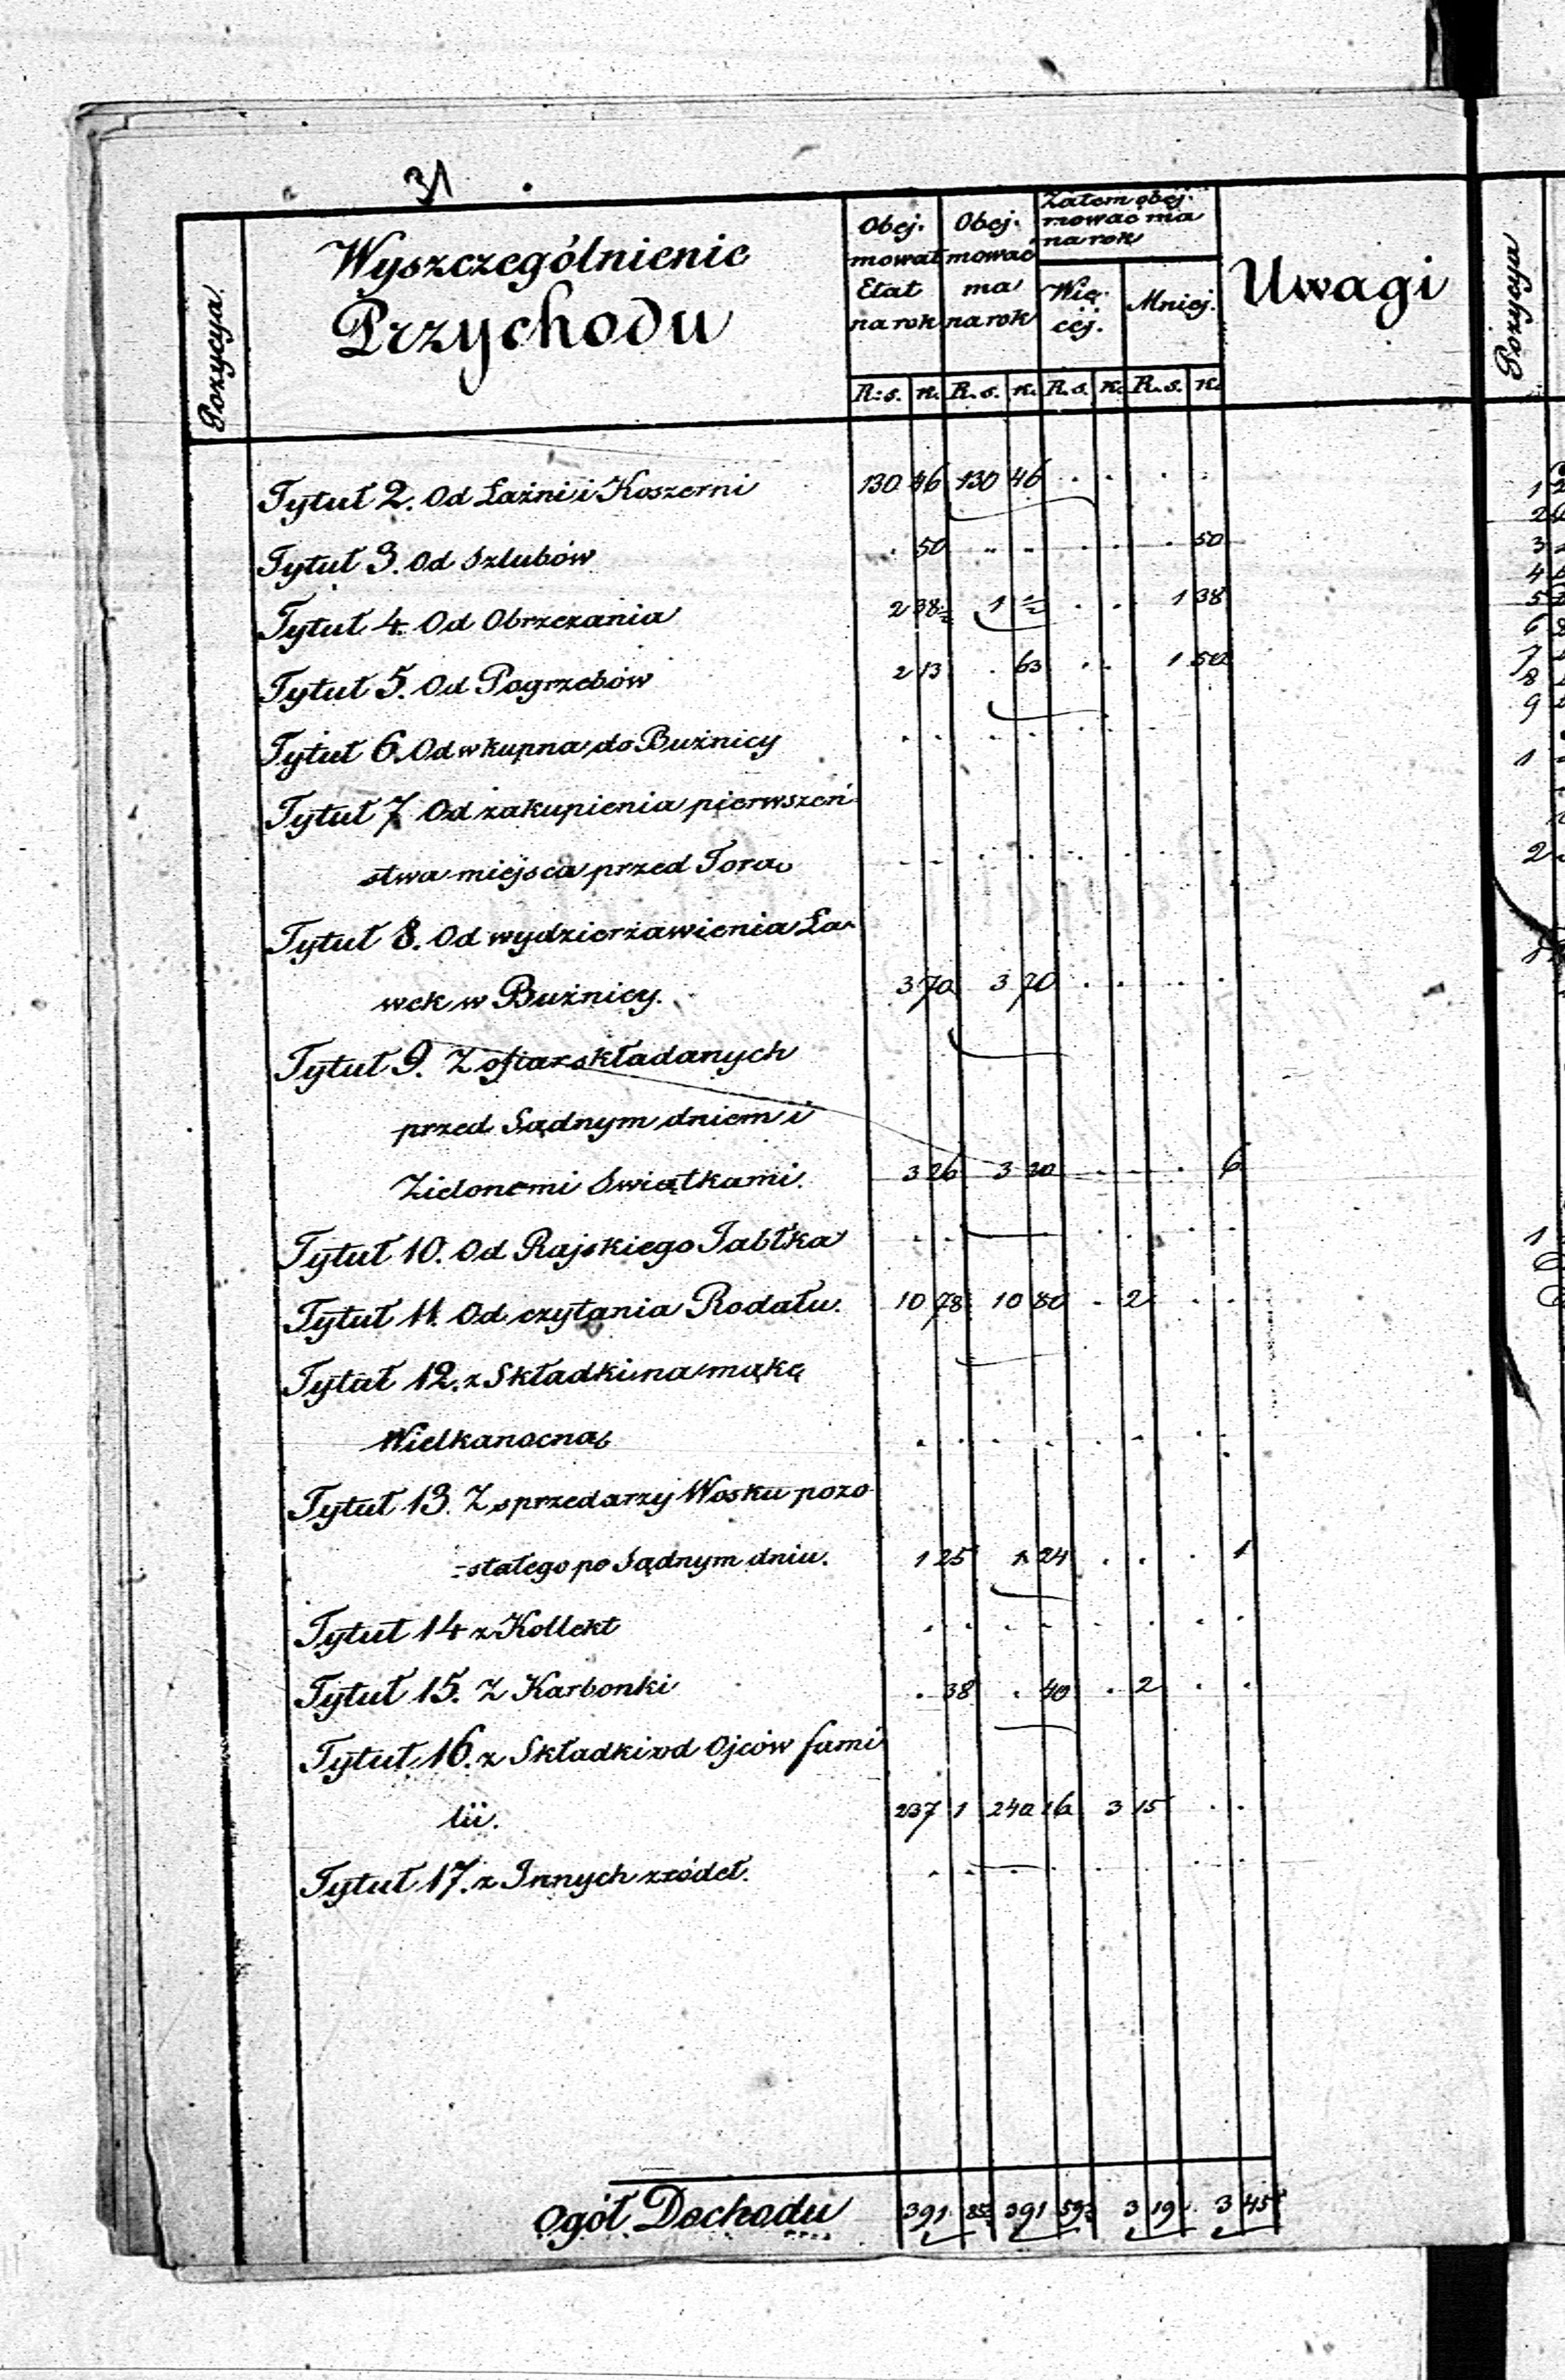 31
Pozycya.
Wyszczególnienie
Przychodu
Obej-
mował
Etat
na rok
Obej-
mować
ma
na rok
Zatem obej-
mować ma
na rok
Wię-
cej.
Mniej.
Uwagi
Pozycya
R: s. k. R. s. k. R. s. k. R. s. k.
Tytuł 2. Od Łaźni i Koszerni 130 46 130 46 . . . .
Tytuł 3. Od Szlubów . 50 . . . . . 50
Tytuł 4. Od Obrzezania 2 38½ 1 ½ . . 1 38
Tytuł 5. Od Pogrzebów 2 13 . 63 . . 1 50
Tytuł 6. Od wkupna do Bużnicy . . . . . . . .
Tytuł 7. Od zakupienia pierwszeń-
stwa miejsca przed Tora . . . . . . . .
Tytuł 8. Od wydzierżawienia Ła-
wek w Bużnicy. 3 70 3 70 . . . .
Tytuł 9. Z ofiar składanych
przed Sądnym dniem i
Zielonemi Swiątkami. 3 26 3 20 . . . 6
Tytuł 10. Od Rajskiego Jabłka . . . . . . . .
Tytuł 11. Od czytania Rodału. 10 78 10 80 . 2 . .
Tytuł 12. z Składki na mąkę
Wielkanocną . . . . . . . .
Tytuł 13. Z sprzedarzy Wosku pozo-
=stałego po Sądnym dniu. 1 25 1 24 . . . 1
Tytuł 14 z Kollekt . . . . . . . .
Tytuł 15. Z Karbonki . 38 . 40 . 2 . .
Tytuł 16. z Składki od Ojców fami-
lii. 237 1 240 16 3 15 . .
Tytuł 17. z Innych zródeł. . . . . . . . .
Ogół Dochodu 391 85½ 391 59½ 3 19 3 45